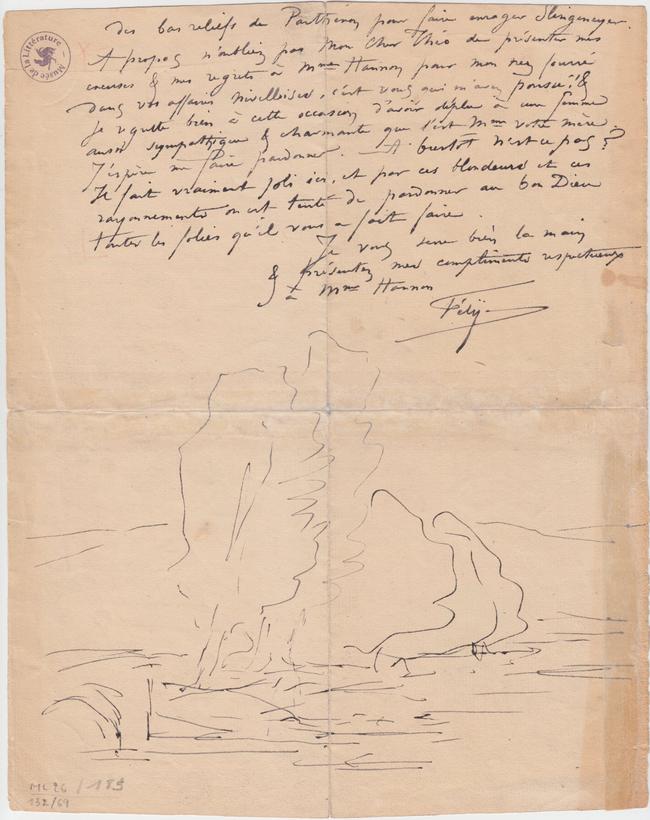 des bas reliefs de Parthénon pour faire enrager Slingeneyer.
A propos n'oubliez pas Mon Cher Théo de présenter mes
excuses & mes regrets à Mme Hannon pour mon nez fourré
dans vos affaires Nivelloises, c'est vous qui m'avez poussé! &
je regrette bien à cette occasion d'avoir déplu à une femme
aussi sympathique & charmante que l'est Mme votre mère.
J'espère me faire pardonner. – A bientôt n'est ce pas?
Il fait vraiment joli ici, et par ces blondeurs et ces
rayonnements on est tenté de pardonner au bon Dieu
toutes les folies qu'il vous a fait faire.
Je vous serre bien la main
& présentez mes compliments respectueux
à Mme Hannon
Fély
Musée de la Littérature
ML 26 / 189
132/69